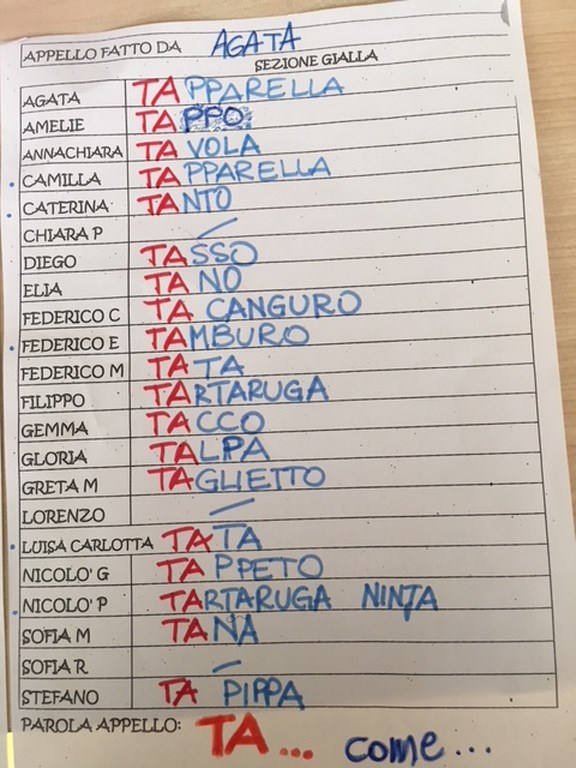 APPELLO FATTO DA AGATA
SEZIONE GIALLA
AGATA TAPPARELLA
AMELIE TAPPO
ANNACHIARA TAVOLA
CAMILLA TAPPARELLA
CATERINA TANTO
CHIARA P /
DIEGO TASSO
ELIA TANO
FEDERICO C TA CANGURO
FEDERICO E TAMBURO
FEDERICO M TATA
FILIPPO TARTARUGA
GEMMA TACCO
GLORIA TALPA
GRETA M TAGLIETTO
LORENZO /
LUISA CARLOTTA TATA
NICOLO' G TAPPETO
NICOLO' P TARTARUGA NINJA
SOFIA M TANA
SOFIA R /
STEFANO TA PIPPA
PAROLA APPELLO: TA... come...